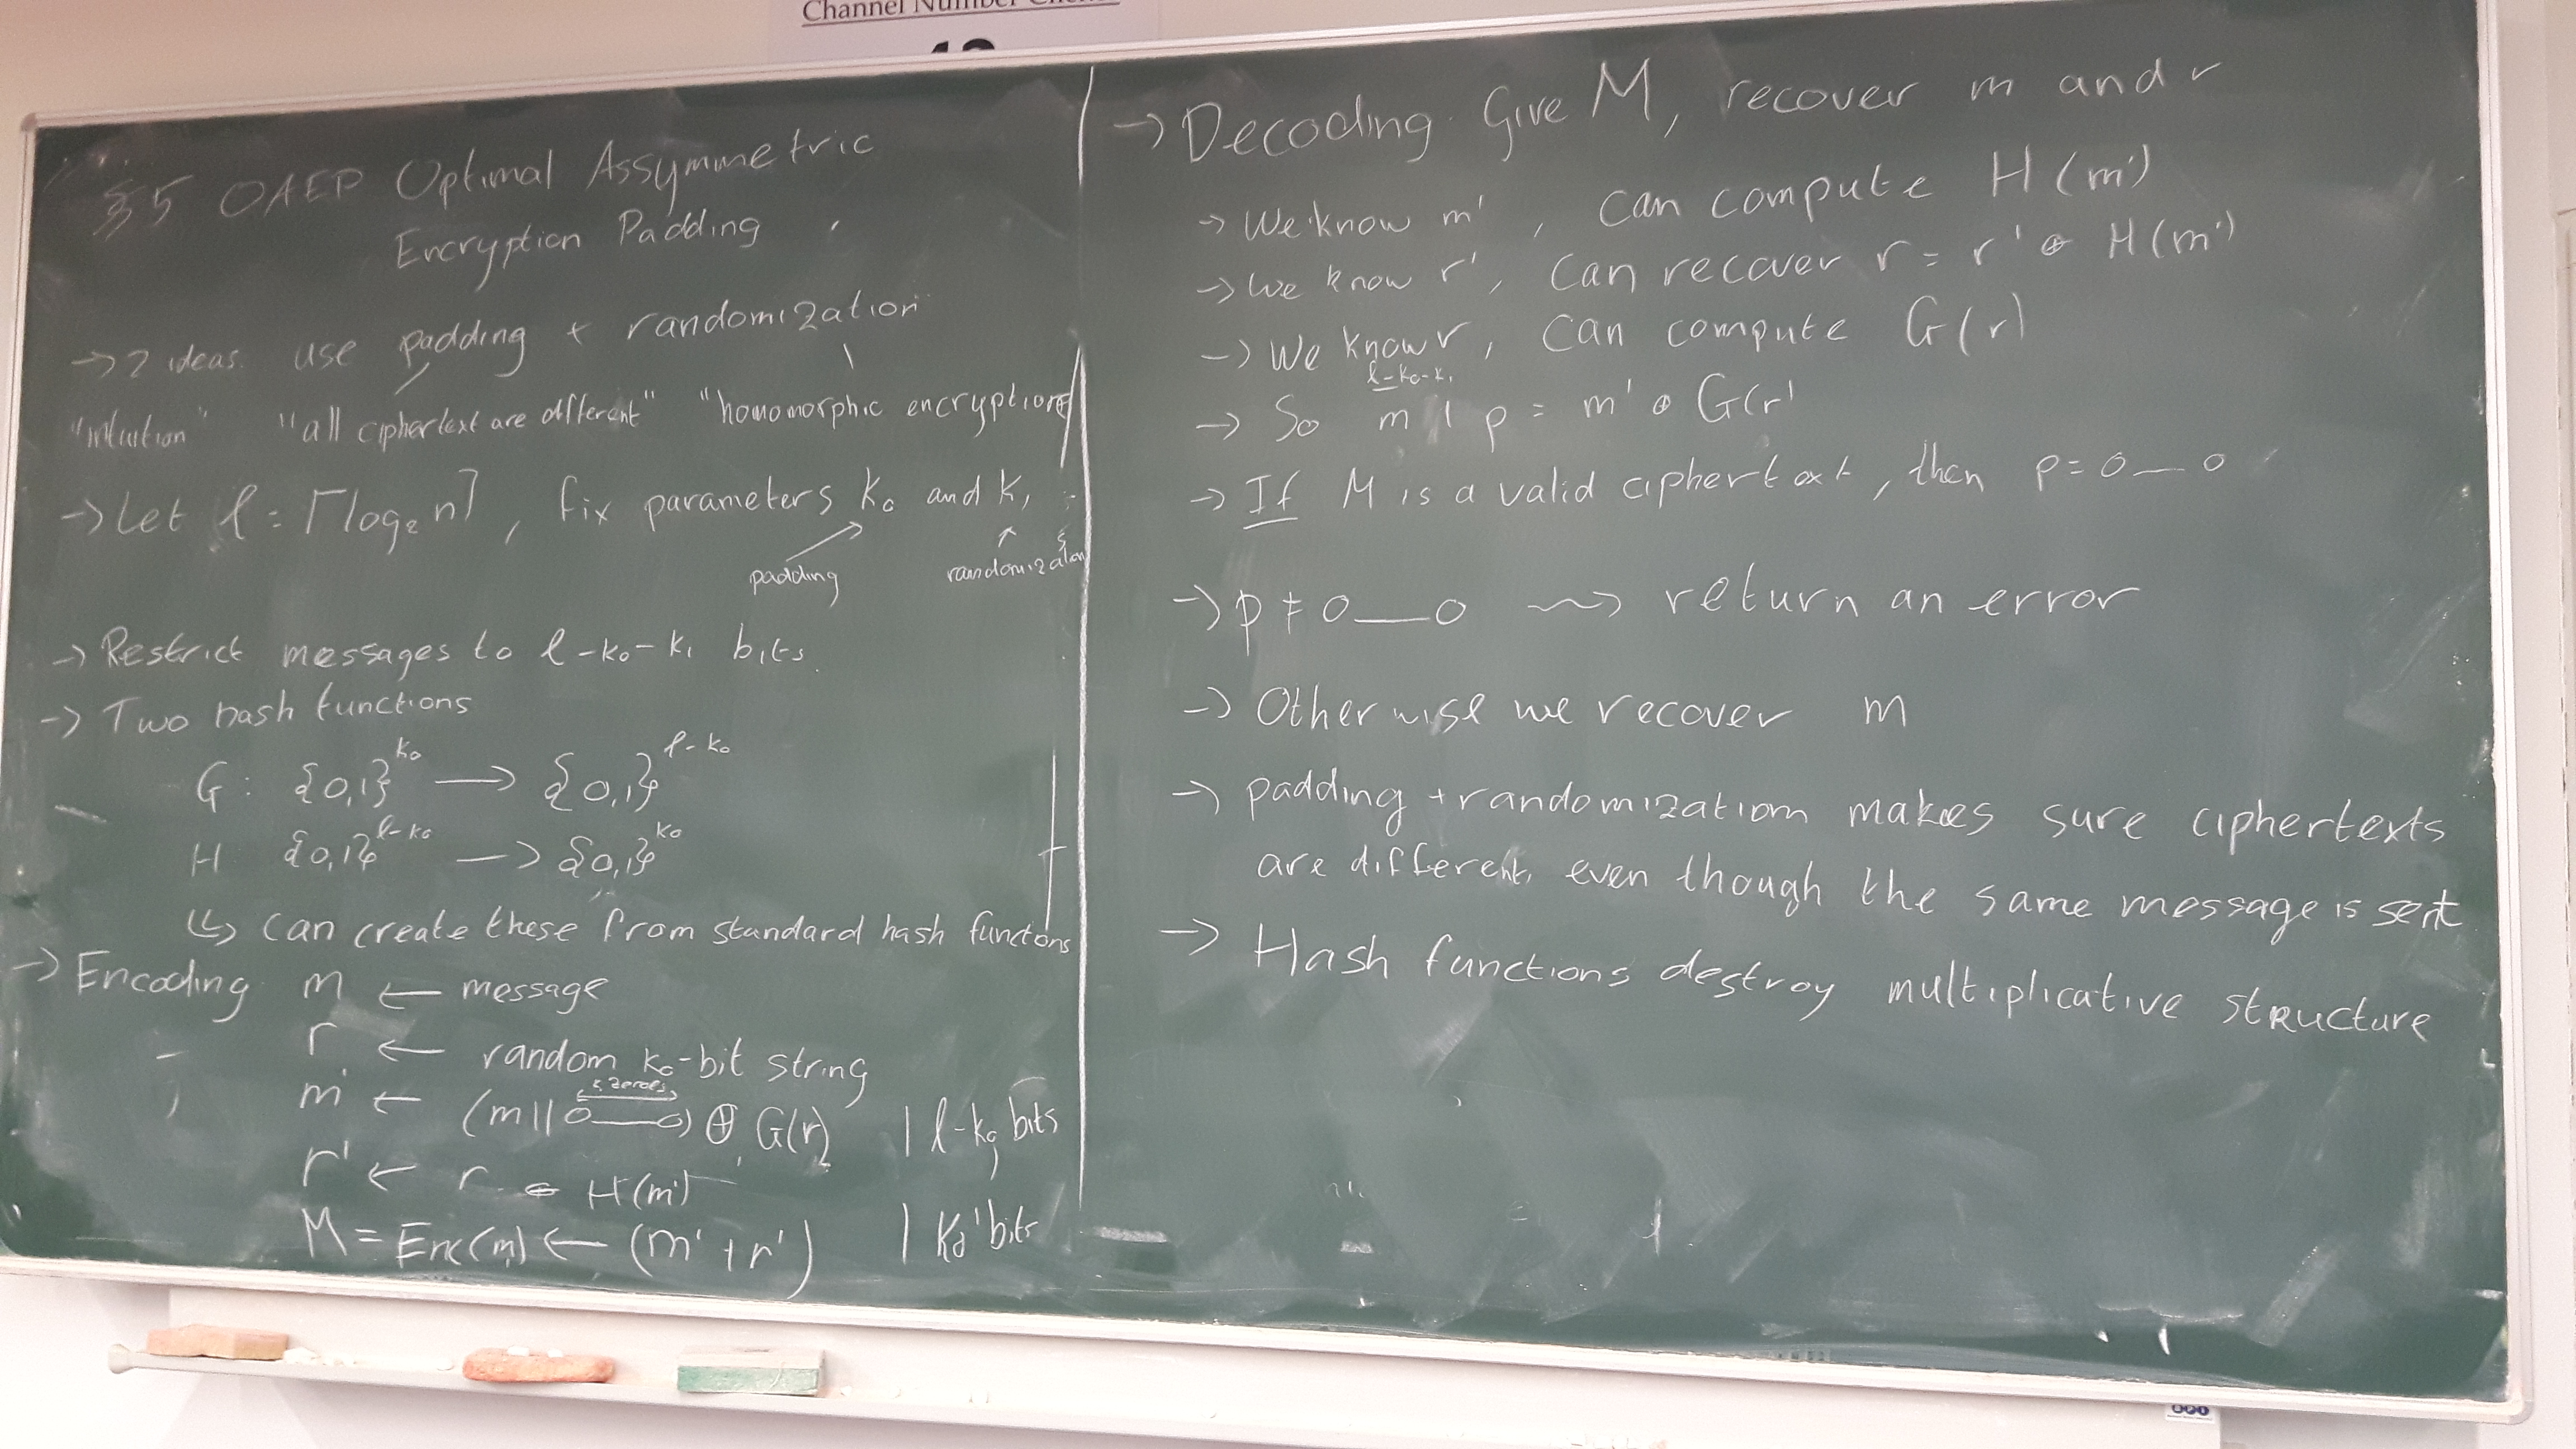 Channel Number
§5 OAEP Optimal Assymmetric
Encryption Padding
→ 2 ideas. use padding + randomization
"intuition" "all ciphertext are different" "homomorphic encryption"
→ Let ℓ = ⌈log₂ n⌉, fix parameters k₀ and k₁
padding randomization
→ Restrict messages to ℓ-k₀-k₁ bits.
→ Two hash functions
G: {0,1}^k₀ → {0,1}^ℓ-k₀
H {0,1}^ℓ-k₀ → {0,1}^k₀
↳ can create these from standard hash functions
→ Encoding m ← message
r ← random k₀-bit string
zeroes
m' ← (m||0—0) ⊕ G(r) | ℓ-k₀ bits
r' ← r ⊕ H(m')
M = Enc(m) ← (m' + r') | k₀ bits
→ Decoding. Give M, recover m and r
→ We know m', can compute H(m')
→ We know r', can recover r = r' ⊕ H(m')
→ We know r, can compute G(r)
ℓ-k₀-k₁
→ So m | p = m' ⊕ G(r)
→ If M is a valid ciphertext, then p = 0—0
→ p ≠ 0—0 ⇝ return an error
→ Otherwise we recover m
→ padding + randomization makes sure ciphertexts
are different, even though the same message is sent
→ Hash functions destroy multiplicative structure